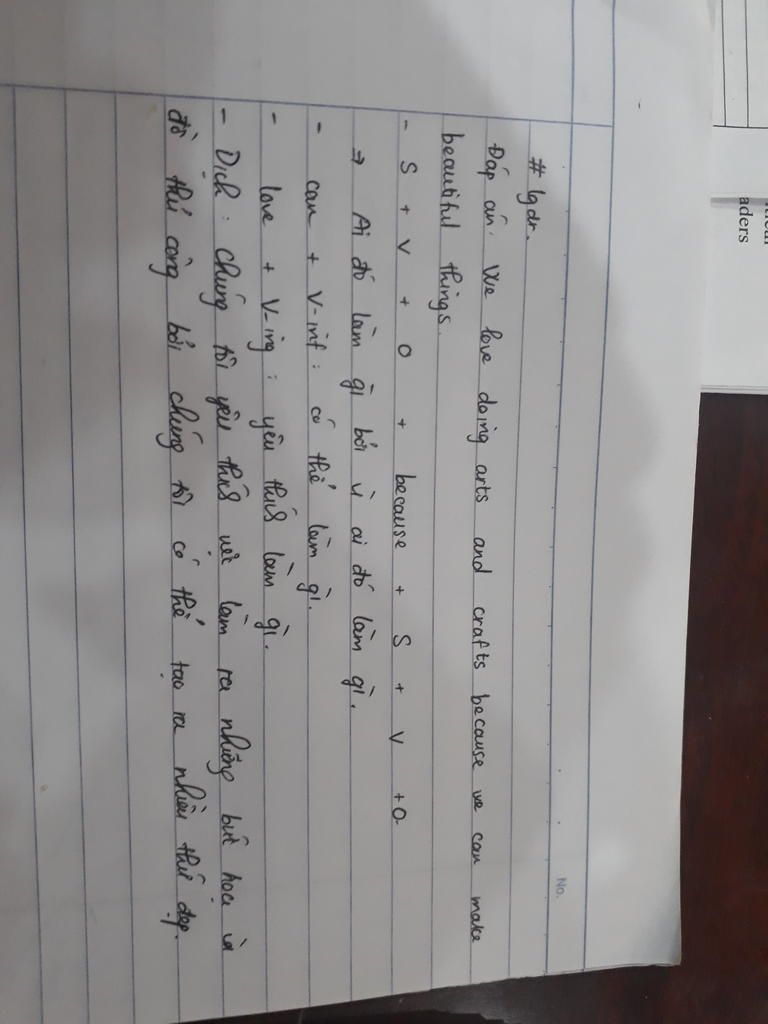 No.
# lgdr.
Đáp án: We love doing arts and crafts because we can make
beautiful things.
- S + V + O + because + S + V + O
→ Ai đó làm gì bởi vì ai đó làm gì.
- can + V-inf : có thể làm gì.
- love + V-ing : yêu thích làm gì.
- Dịch : Chúng tôi yêu thích việc làm ra những bức họa và
đồ thủ công bởi chúng tôi có thể tạo ra nhiều thứ đẹp.
aders